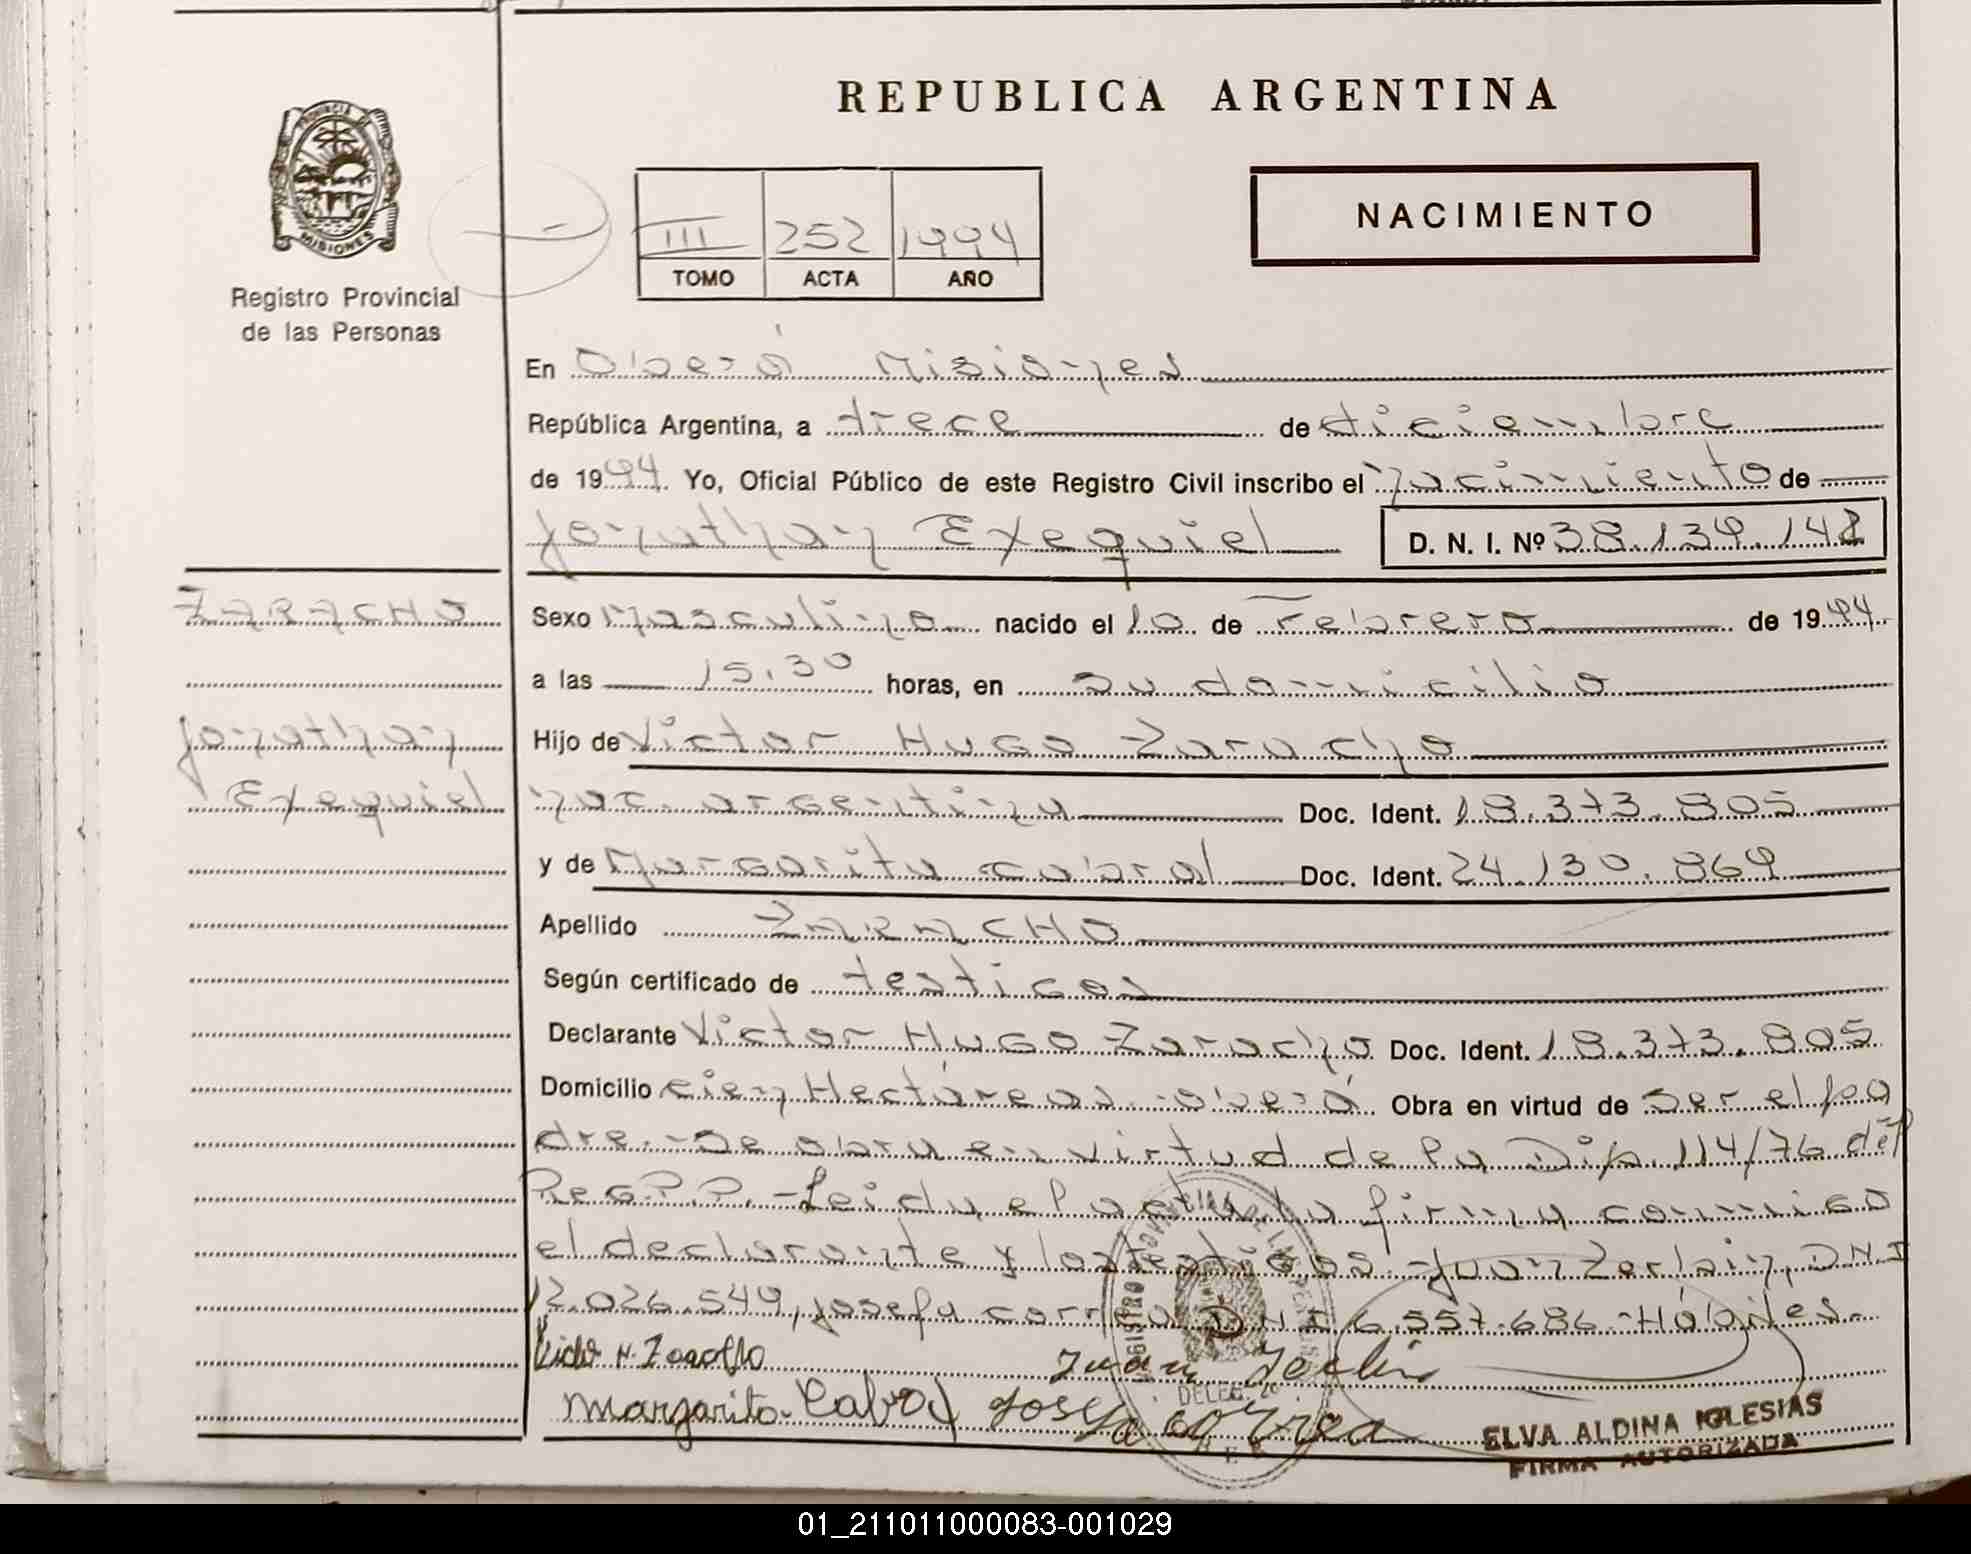 REPUBLICA ARGENTINA
PROVINCIA DE
MISIONES
Registro Provincial
de las Personas
NACIMIENTO
III 252 1994
TOMO ACTA AÑO
En Oberá Misiones
República Argentina, a trece de diciembre
de 1994 Yo, Oficial Público de este Registro Civil inscribo el nacimiento de
Jonathan Exequiel D. N. I. Nº 38.139.142
ZARACHO
Jonathan
Exequiel
Sexo Masculino nacido el 10 de Febrero de 1994
a las 15.30 horas, en su domicilio
Hijo de Victor Hugo Zaracho
nac. argentina Doc. Ident. 18.373.805
y de Margarita Cabral Doc. Ident. 24.130.869
Apellido ZARACHO
Según certificado de testigos
Declarante Victor Hugo Zaracho Doc. Ident. 18.373.805
Domicilio cien Hectáreas -Oberá Obra en virtud de ser el pa
dre.-Se obra en virtud de la Dip. 114/76 del
Reg.P.P.-Leida el acta la firma conmigo
el declarante y los testigos.-Juan Zerbin, D.N.I
12.026.549, Josefa correa D.N.I 6.557.686.-Hábiles.-
Juan Zerbin
Margarita Cabral Josefa correa
REGISTRO PROVINCIAL DE LAS PERSONAS
DELEG.
ELVA ALDINA IGLESIAS
FIRMA AUTORIZADA
01_211011000083-001029